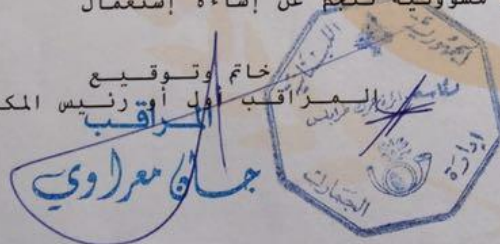 مسؤولية تنجم عن إساءة إستعمال
خاتم وتوقيع
المراقب أول أو رئيس المك
المراقب
جان معراوي
الجمهورية اللبنانية
إدارة
الجمارك